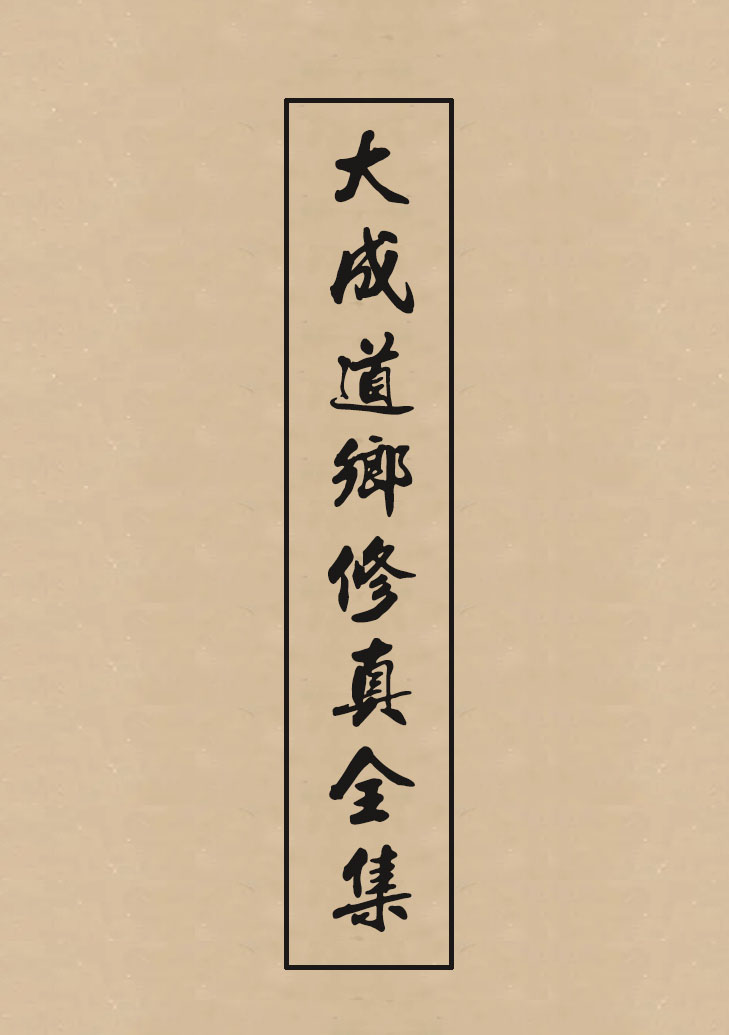 大成道鄉修真全集